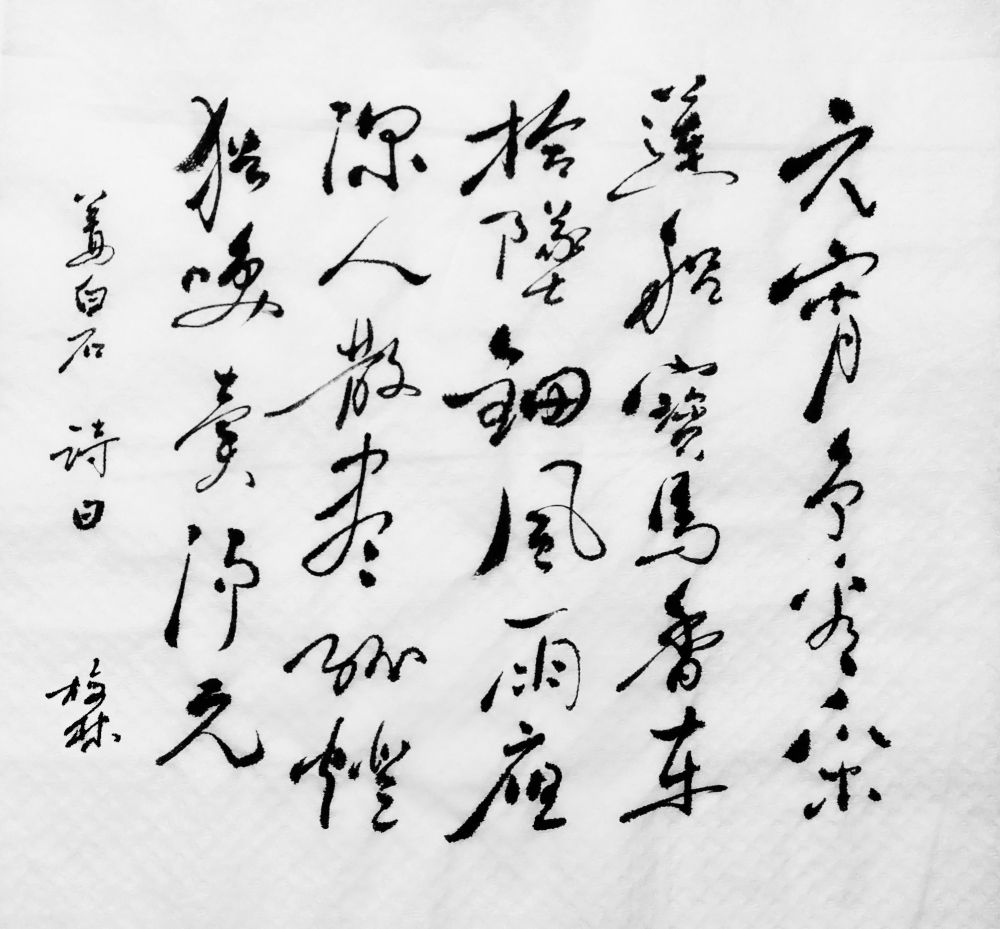 元宵爭看采
蓮船寶馬香車
拾墜鈿風雨
深人散盡孤燈
猶喚賣湯元
姜白石 詩曰 梅林